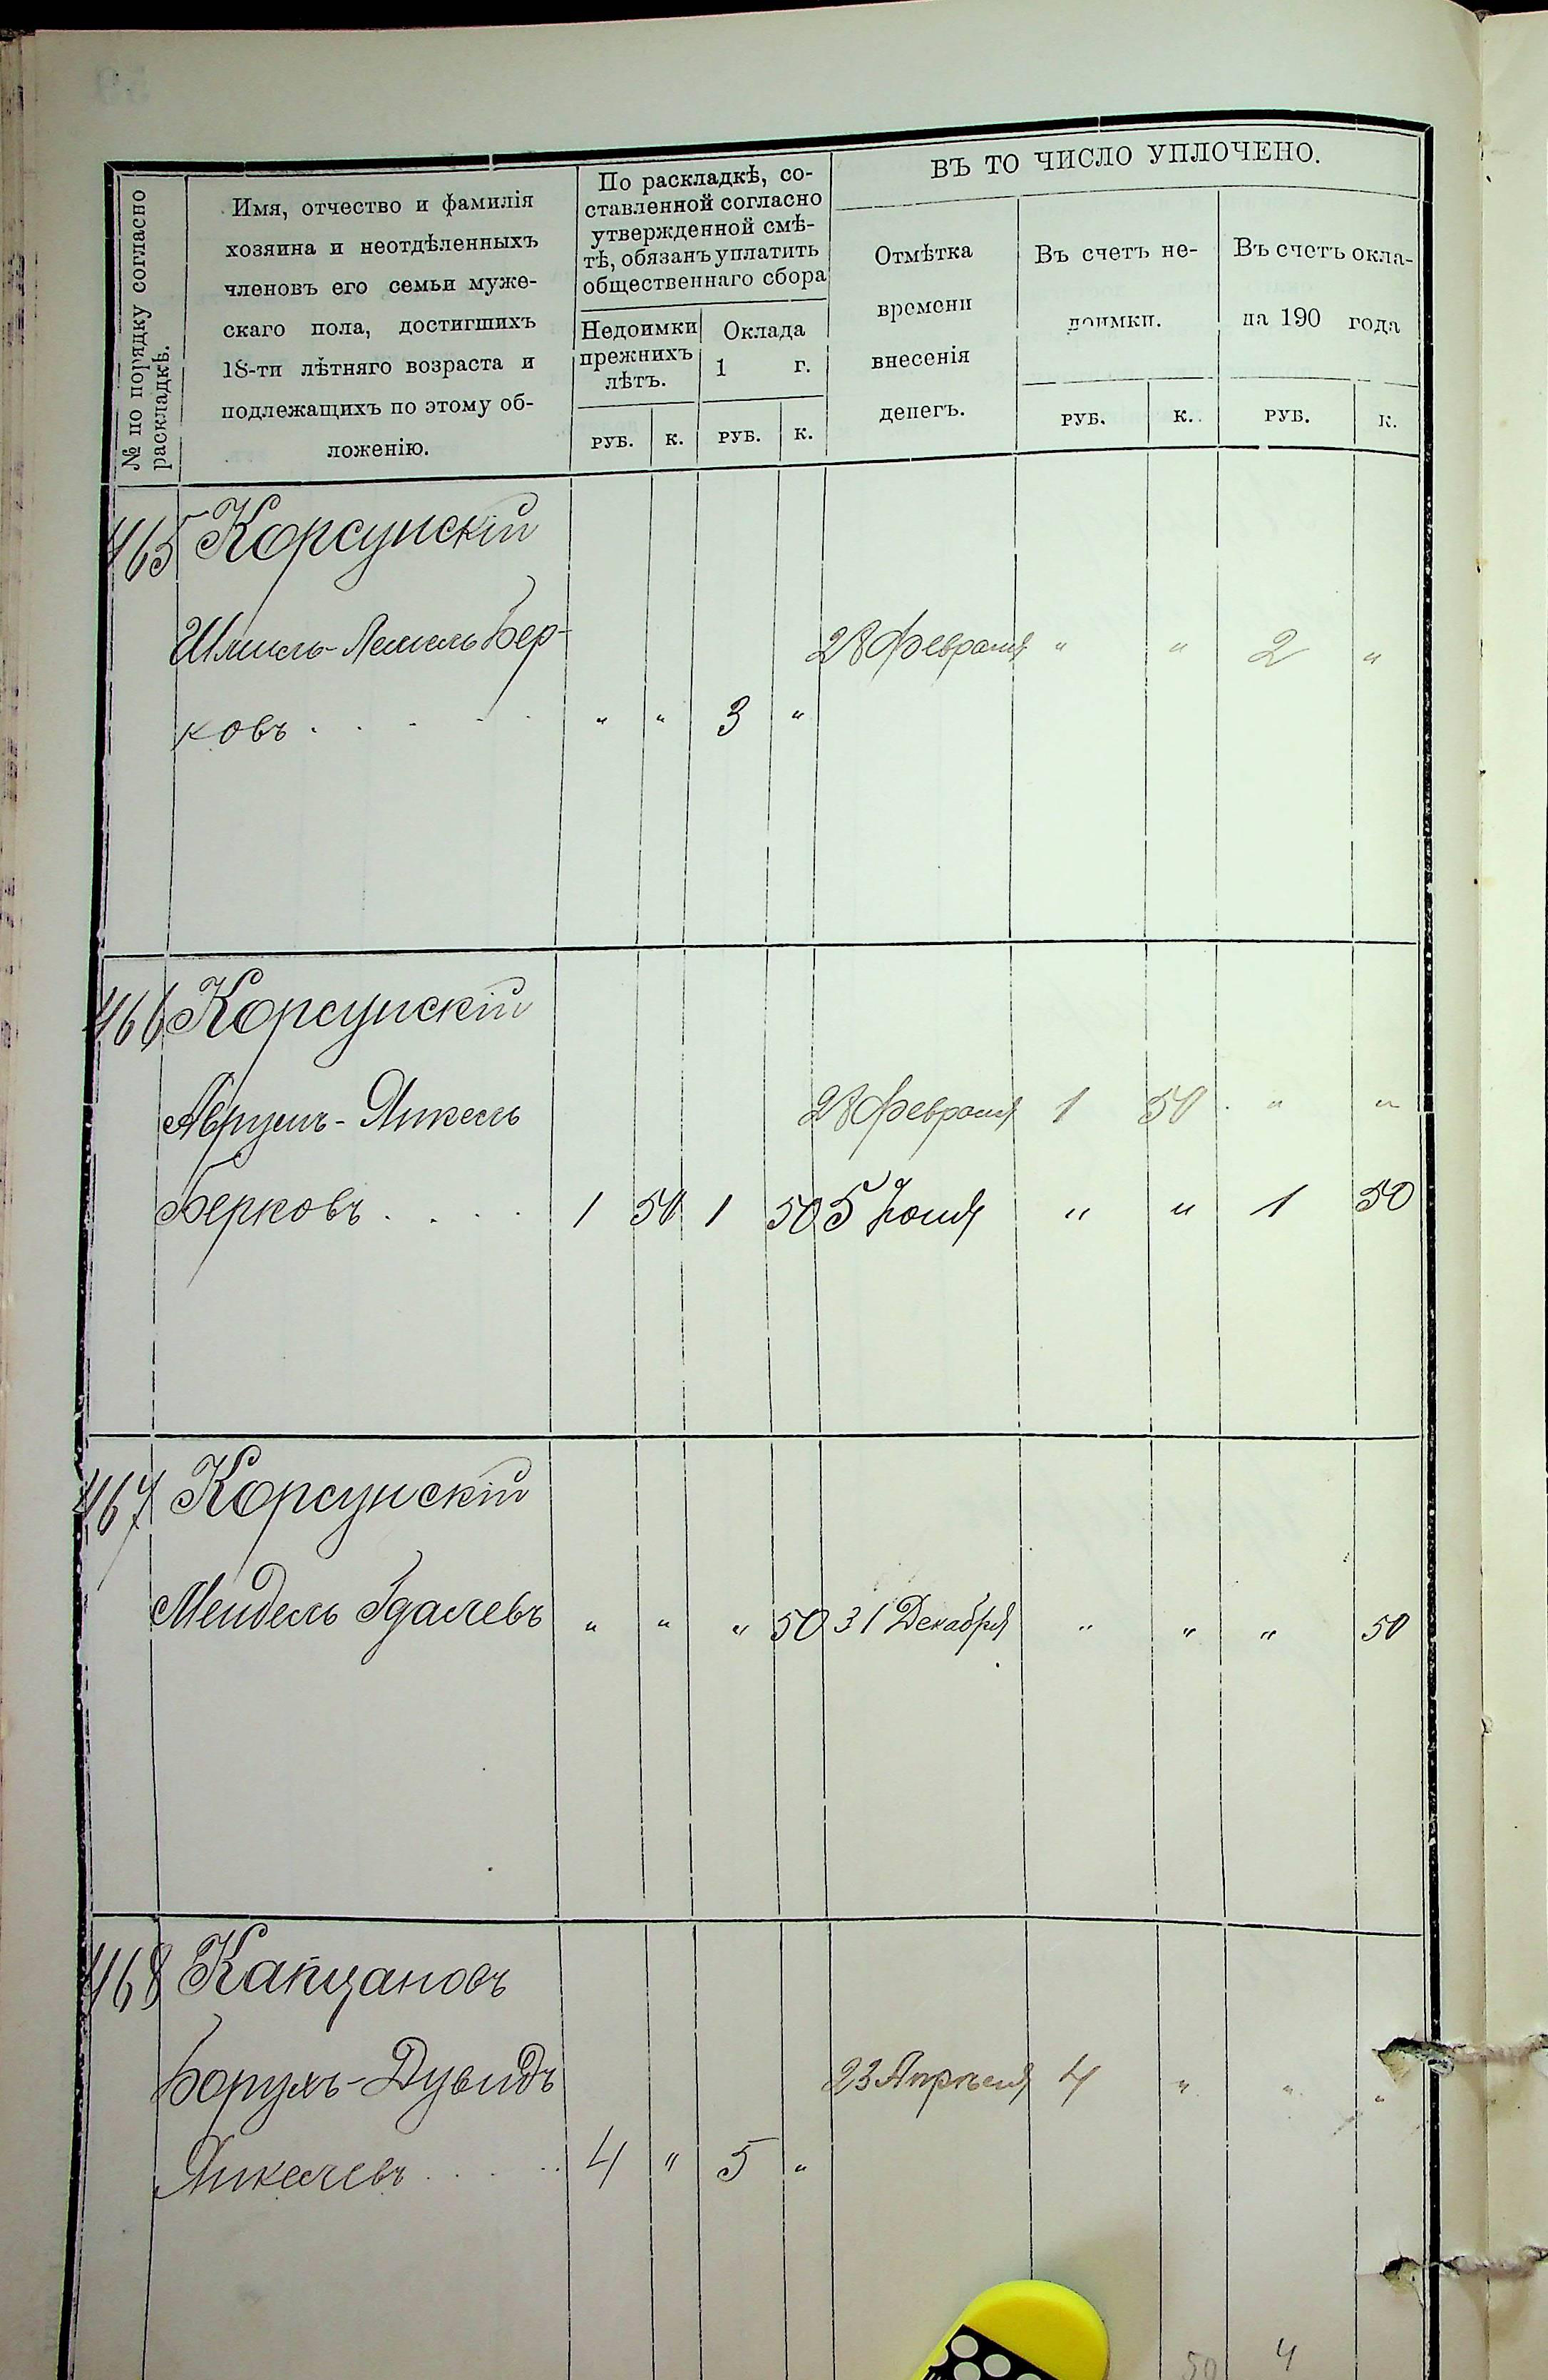 № по порядку согласно
раскладкѣ.
Имя, отчество и фамилія
хозяина и неотдѣленныхъ
членовъ его семьи муже-
скаго пола, достигшихъ
18-ти лѣтняго возраста и
подлежащихъ по этому об-
ложенію.
По раскладкѣ, со-
ставленной согласно
утвержденной смѣ-
тѣ, обязанъ уплатить
общественнаго сбора
Недоимки
прежнихъ
лѣтъ.
Оклада
1 г.
РУБ. К. РУБ. К.
ВЪ ТО ЧИСЛО УПЛОЧЕНО.
Отмѣтка
времени
внесенія
денегъ.
Въ счетъ не-
доимки.
Въ счетъ окла-
на 190 года
РУБ. К. РУБ. К.
465 Корсунскій
Шмиль-Лемель Бер- 28 Февраля " " 2 "
ковъ . . . . " " 3 "
466 Корсунскій
Аврумъ-Янкель 28 Февраля 1 50 " "
Берковъ . . . . 1 50 1 50 5 Іюня " " 1 50
467 Корсунскій
Мендель Гдалевъ " " " 50 31 Декабря " " " 50
468 Капцановъ
Борухъ-Дувидъ 23 Апрѣля 4 " " "
Янкелевъ . . . . 4 " 5 "
50 4